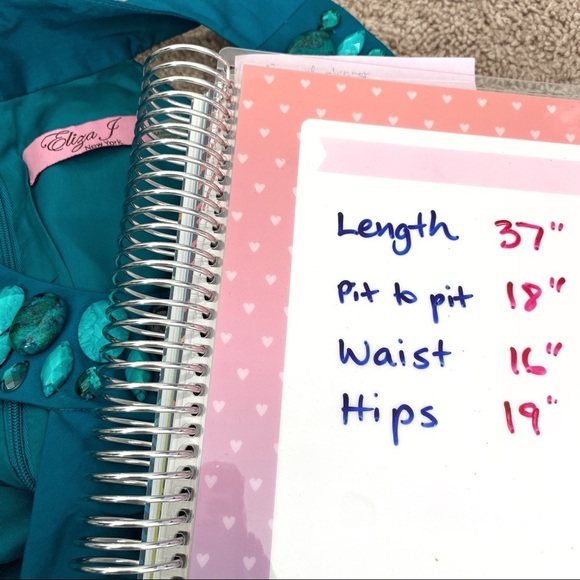 Eliza J
New York
Length 37"
Pit to pit 18"
Waist 16"
Hips 19"